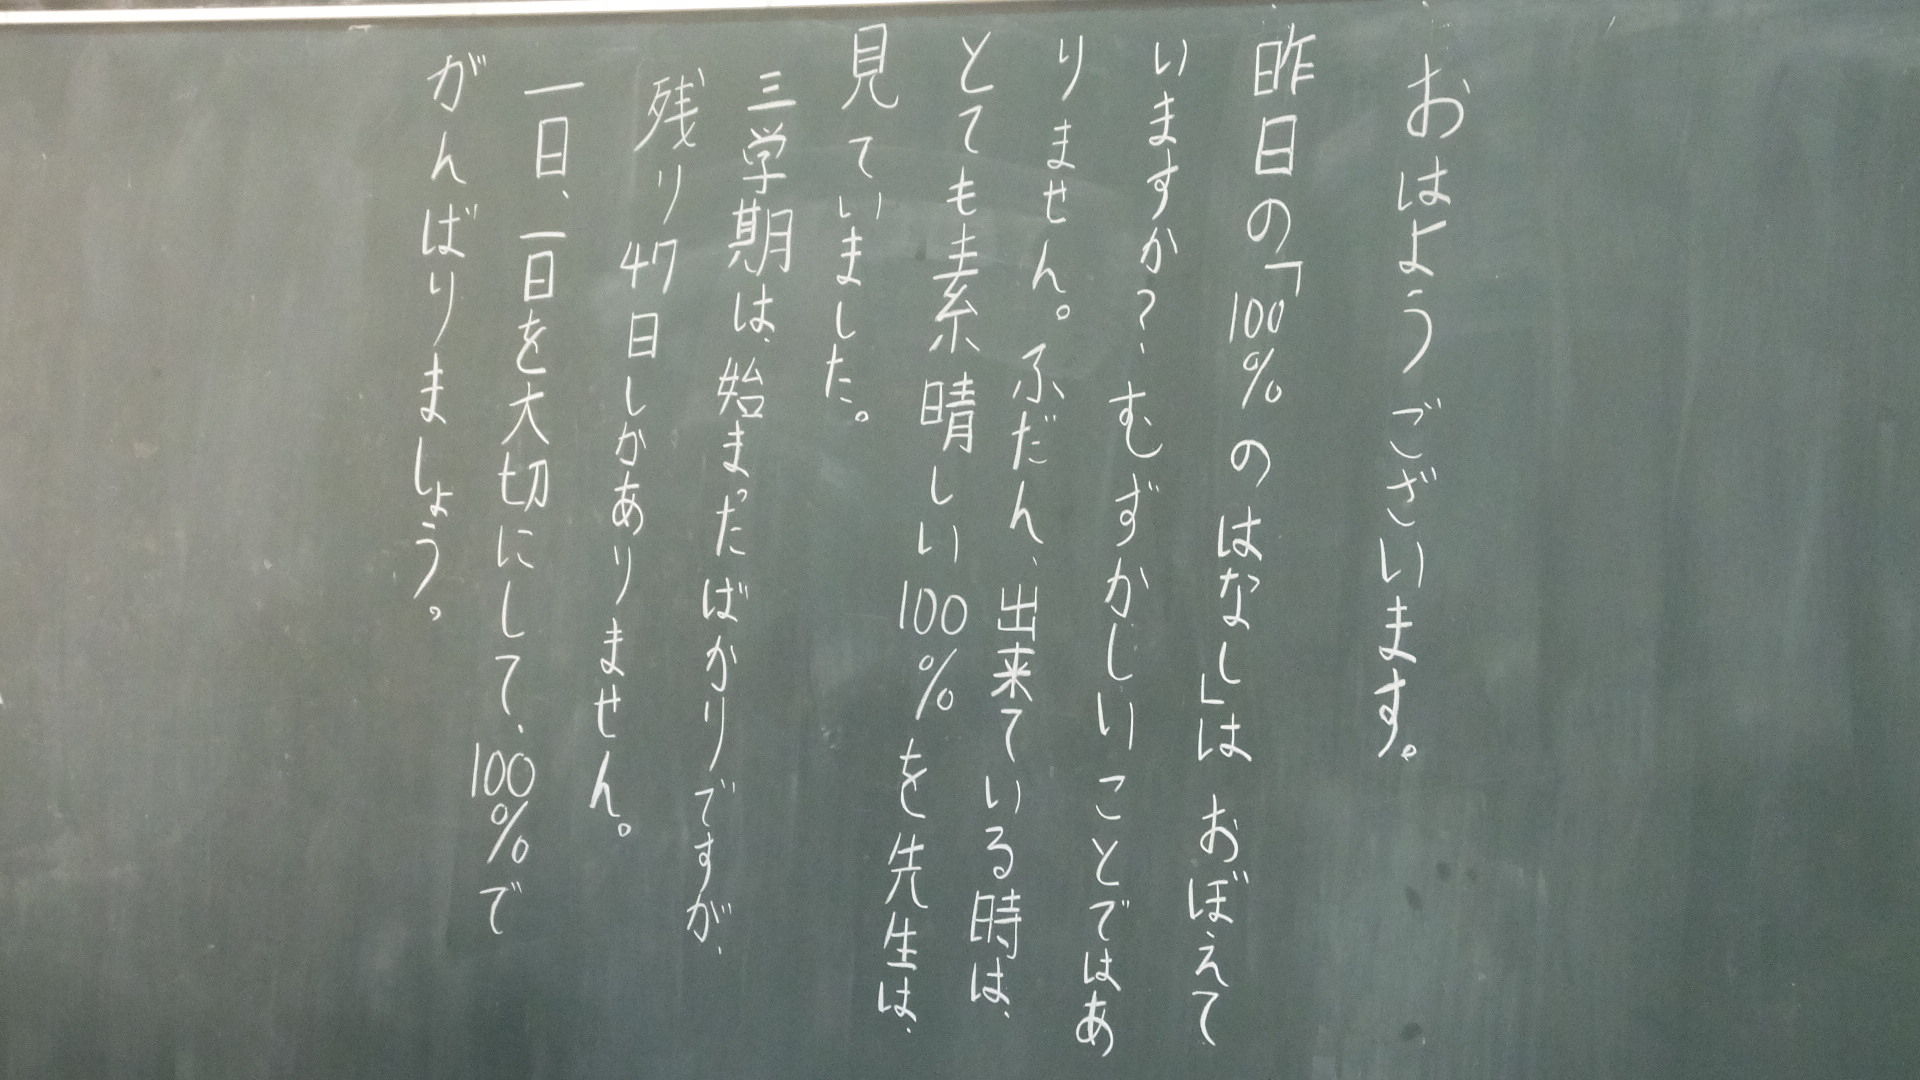 おはようございます。
昨日の「100%のはなし」は おぼえて
いますか?むずかしいことではあ
りません。ふだん、出来ている時は、
とても素晴しい100%を先生は、
見ていました。
三学期は、始まったばかりですが、
残り47日しかありません。
一日、一日を大切にして、100%で
がんばりましょう。